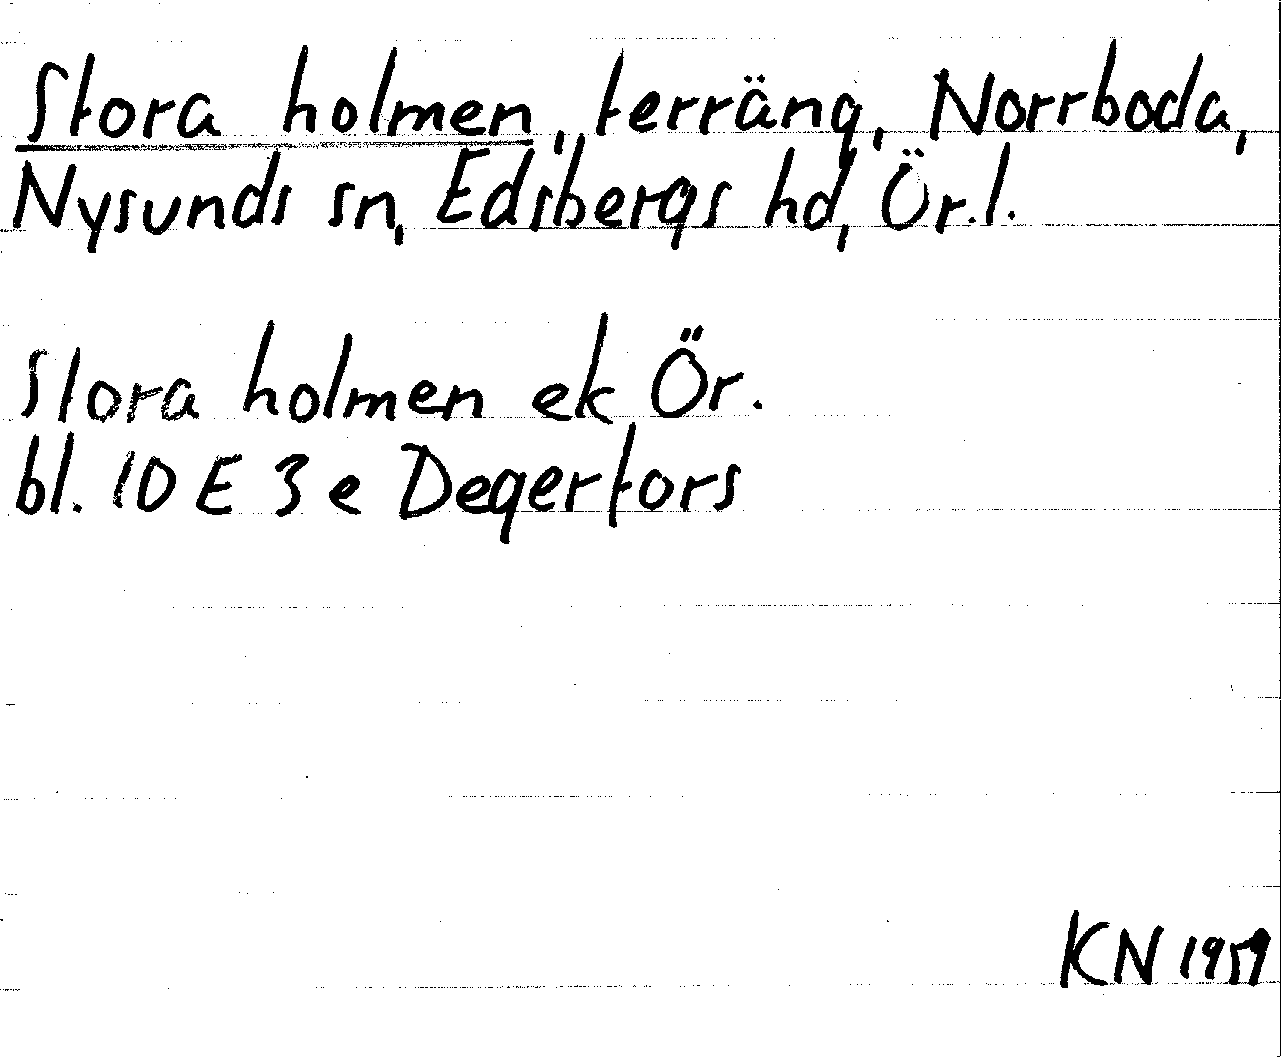 Stora holmen, terräng, Norrboda,
Nysunds sn, Edsbergs hd, Ör.l.
Stora holmen ek Ör.
bl. 10 E 3 e Degerfors
KN 1959